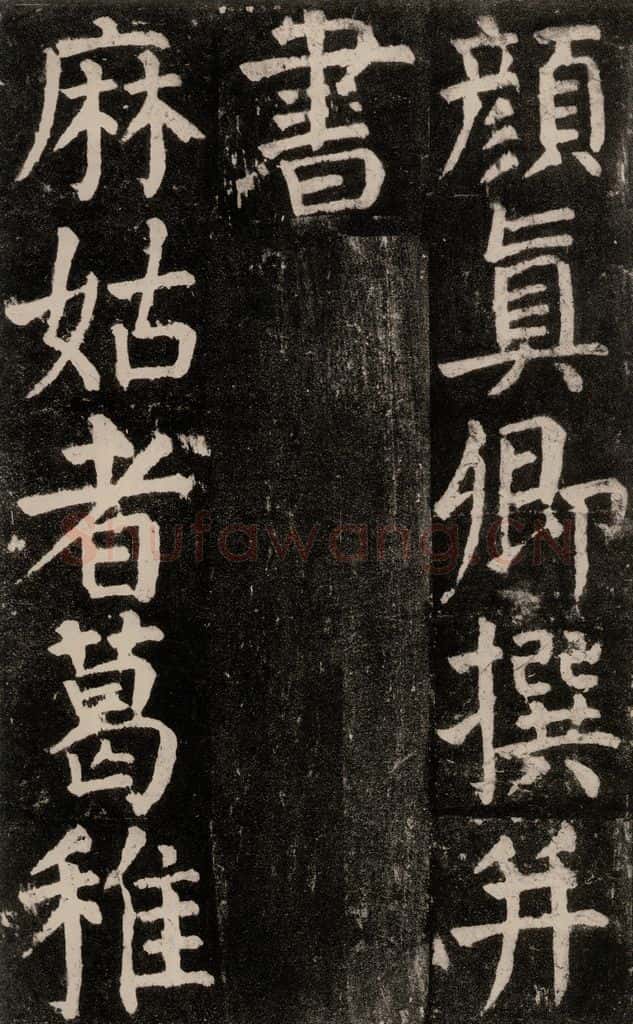 顏真卿撰并
書
麻姑者葛稚
Shufawang.CN